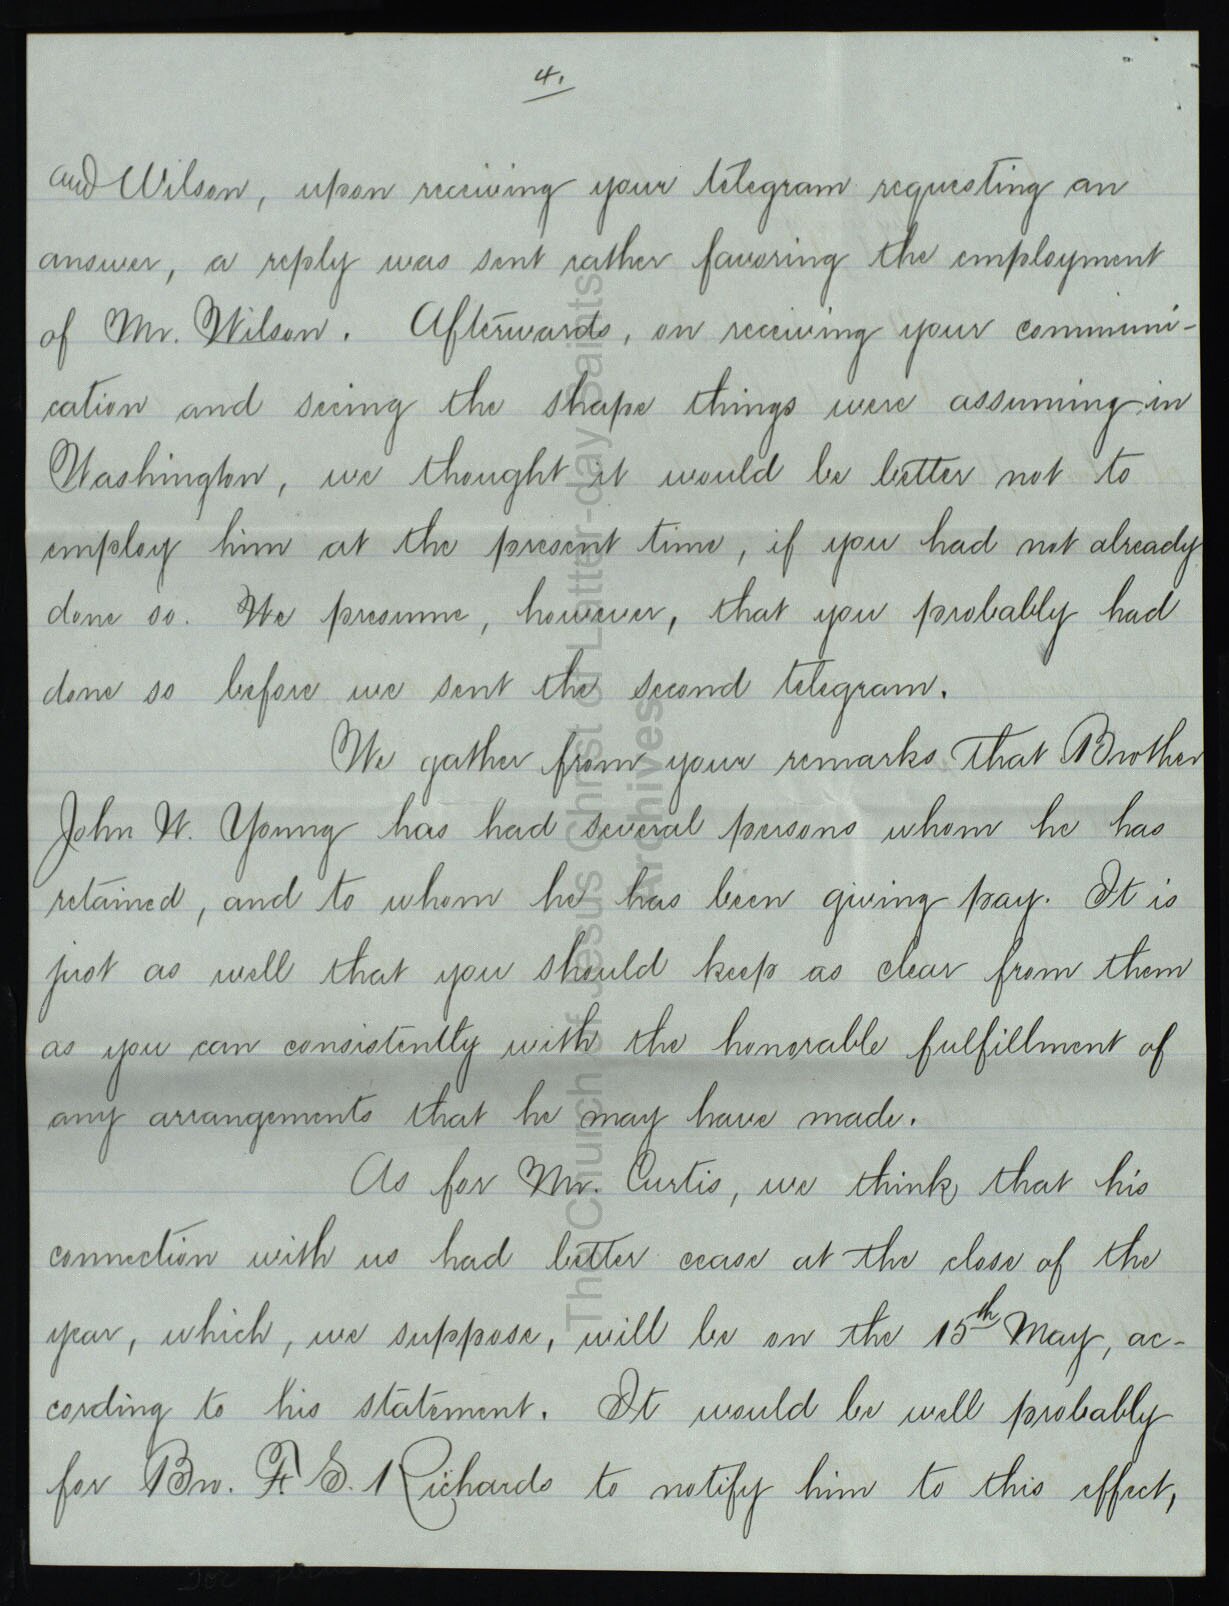 4.
and Wilson, upon receiving your telegram requesting an
answer, a reply was sent rather favoring the employment
of Mr. Wilson. Afterwards, on receiving your communi-
cation and seeing the shape things were assuming in
Washington, we thought it would be better not to
employ him at the present time, if you had not already
done so. We presume, however, that you probably had
done so before we sent the second telegram.
We gather from your remarks that Brother
John W. Young has had several persons whom he has
retained, and to whom he has been giving pay. It is
just as well that you should keep as clear from them
as you can consistently with the honorable fulfillment of
any arrangements that he may have made.
As for Mr. Curtis, we think that his
connection with us had better cease at the close of the
year, which, we suppose, will be on the 15th May, ac-
cording to his statement. It would be well probably
for Bro. F. S. Richards to notify him to this effect,
The Church of Jesus Christ of Latter-day Saints
Archives